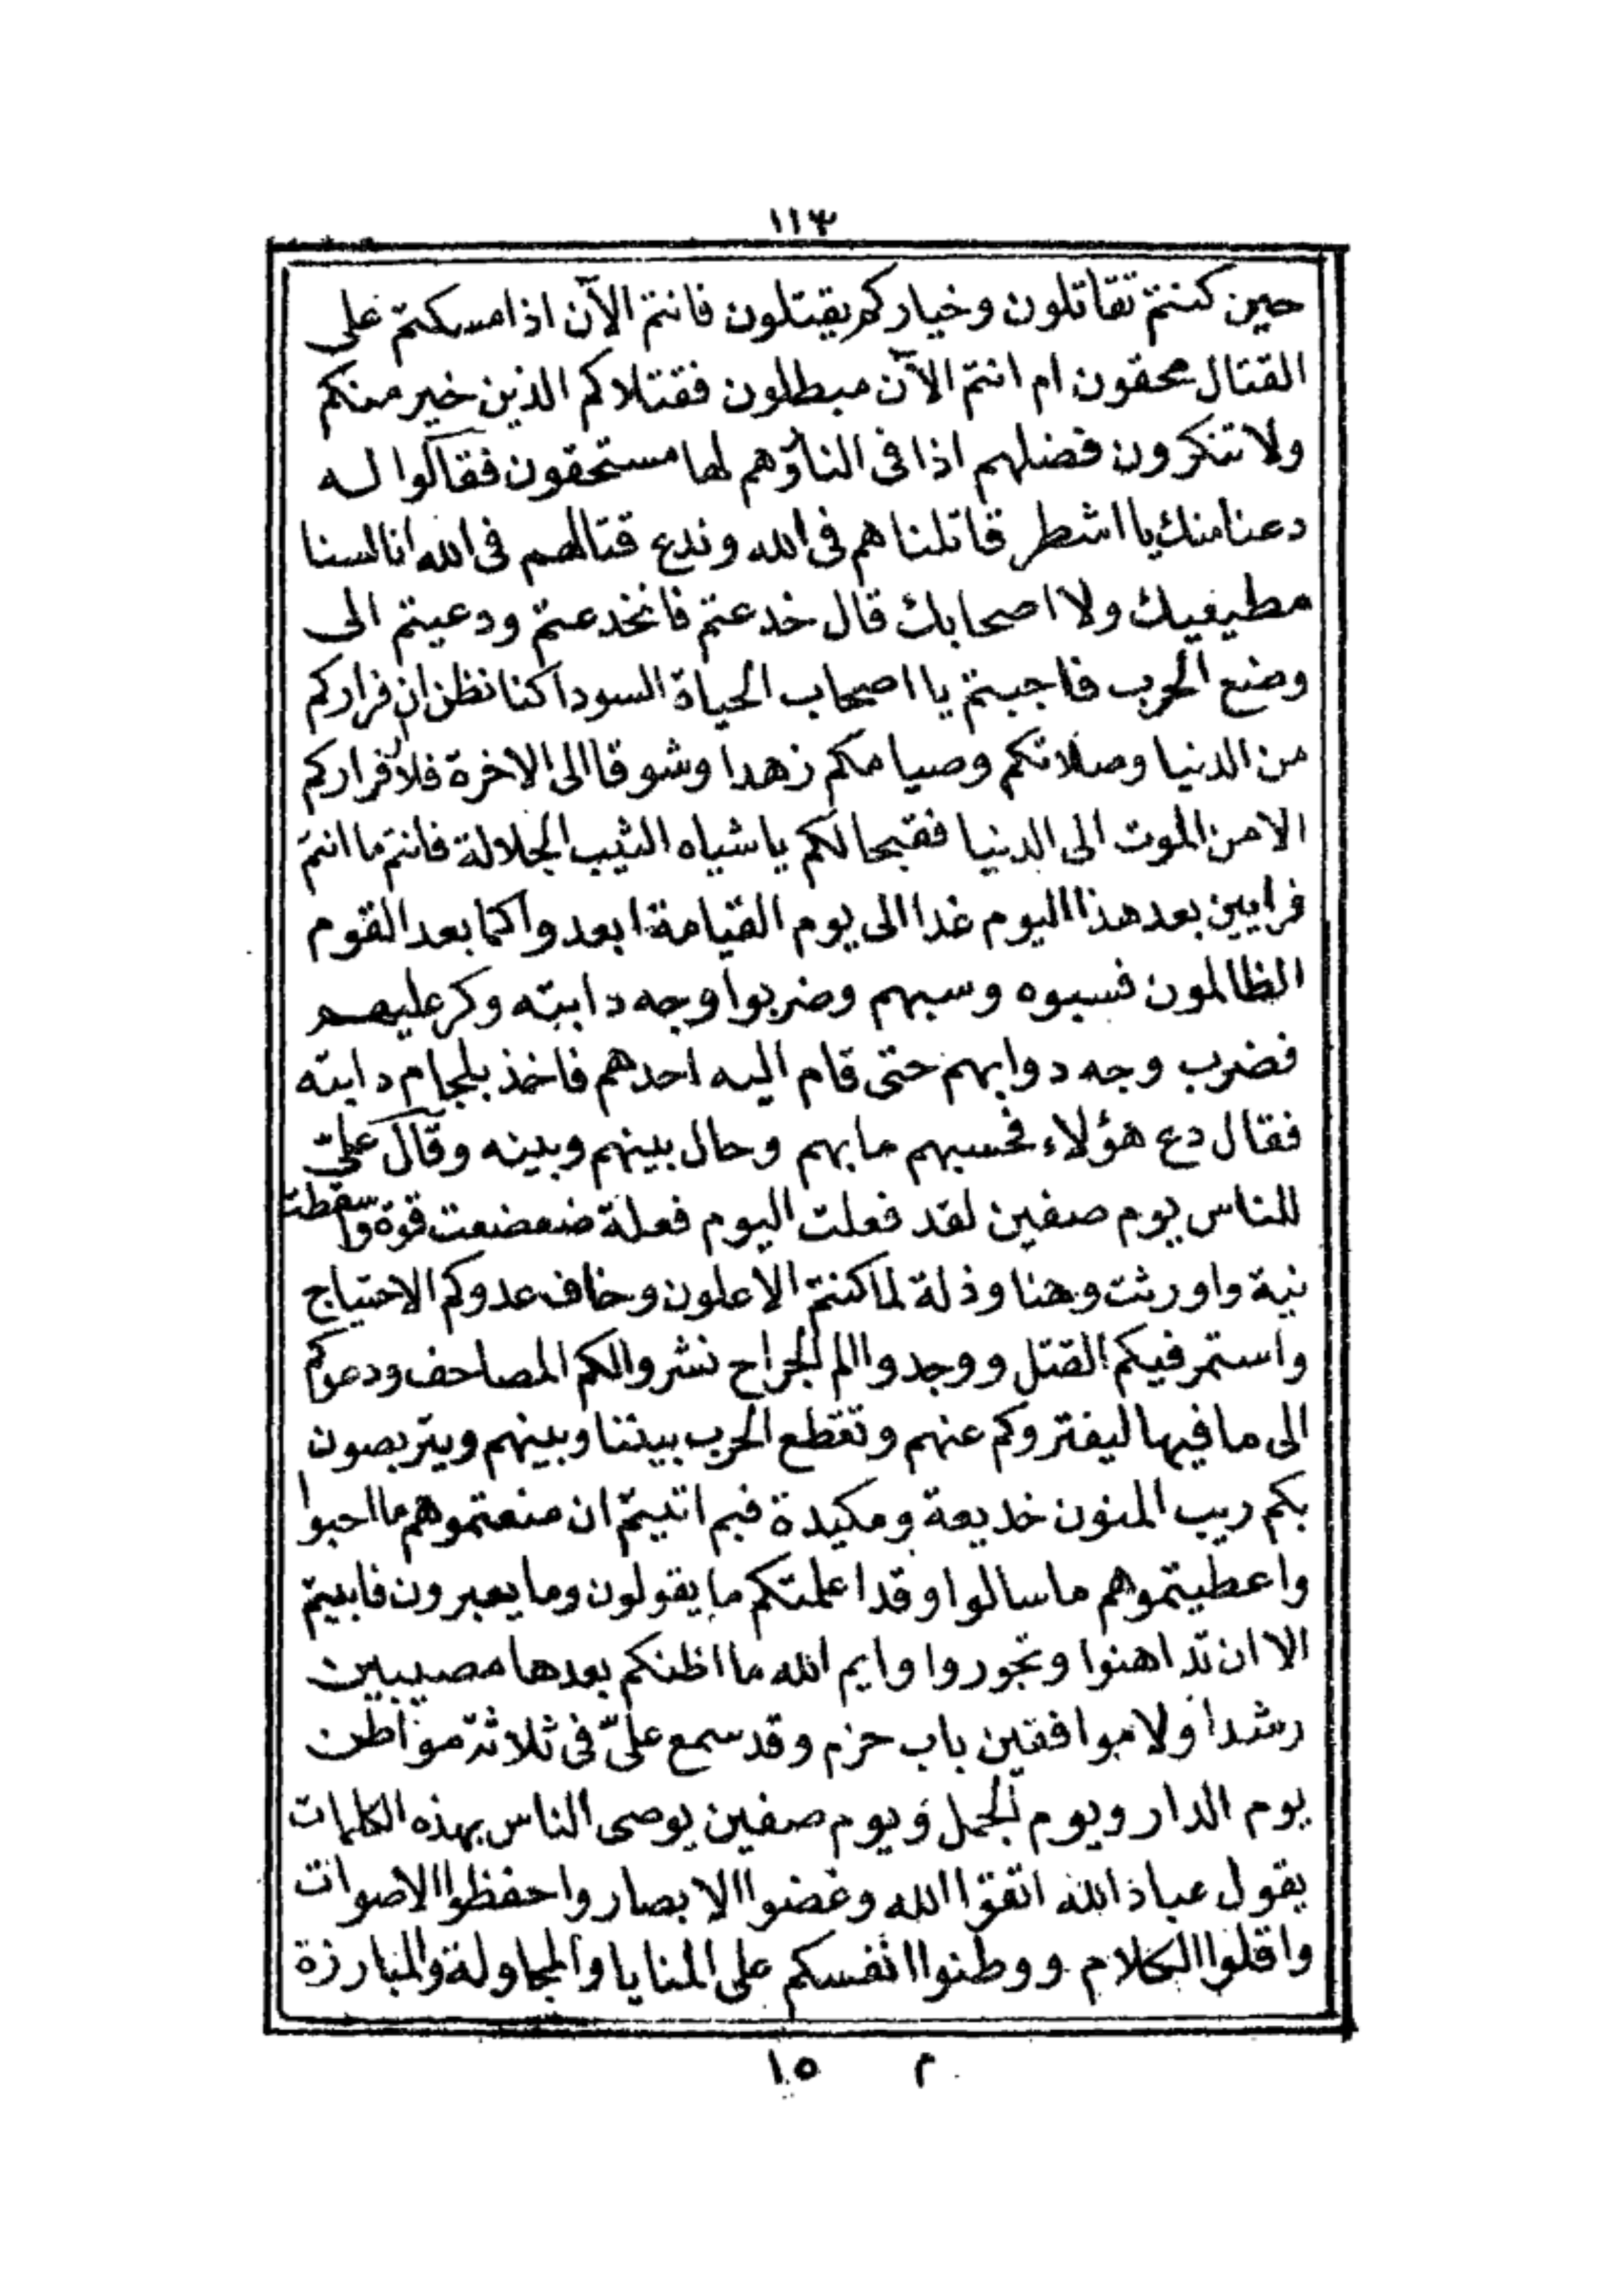 ١١٣
حين كنتم تقاتلون وخياركم يقتلون فانتم الآن اذا مسكتم على
القتال محقون ام انتم الآن مبطلون فقتلاكم الذين خير منكم
ولا تنكرون فضلهم اذا فى النار وهم لها مستحقون فقالوا له
دعنا منك يا اشطر قاتلناهم فى الله وندع قتالهم فى الله انا لسنا
مطيعيك ولا اصحابك قال خدعتم فانخدعتم ودعيتم الى
وضع الحرب فاجبتم يا اصحاب الحياة السودا كنا نظن ان فراركم
من الدنيا وصلاتكم وصيامكم زهدا وشوقا الى الاخرة فلا فراركم
الا من الموت الى الدنيا فقبحا لكم يا شياه النيب الجلالة فانتم ما انتم
فرايين بعد هذا اليوم غدا الى يوم القيامة ابعدوا كما بعد القوم
الظالمون فسبوه وسبهم وضربوا وجه دابته وكر عليهم
فضرب وجه دوابهم حتى قام اليه احدهم فاخذ بلجام دابته
فقال دع هؤلاء فحسبهم ما بهم وحال بينهم وبينه وقال علىّ
للناس يوم صفين لقد فعلت اليوم فعلة ضعضعت قوة واسقطت
نية واورثت وهنا وذلة لما كنتم الاعلون وخاف عدوكم الاحتياج
واستمر فيكم القتل ووجدوا الم الجراح نشروا لكم المصاحف ودعوكم
الى ما فيها ليفتروكم عنهم وتقطع الحرب بيننا وبينهم ويتربصون
بكم ريب المنون خديعة ومكيدة فبم اتيتم ان منعتموهم ما احبوا
واعطيتموهم ما سالوا وقد اعلمتكم ما يقولون وما يعبرون فابيتم
الا ان تداهنوا وتجوروا وايم الله ما اظنكم بعدها مصيبين
رشدا ولا موافقين باب حزم وقد سمع علىّ فى ثلاثة مواطن
يوم الدار ويوم الجمل ويوم صفين يوصى الناس بهذه الكلمات
يقول عباد الله اتقوا الله وغضوا الابصار واحفظوا الاصوات
واقلوا الكلام ووطنوا انفسكم على المنايا والمجاولة والمبارزة
م ١٥